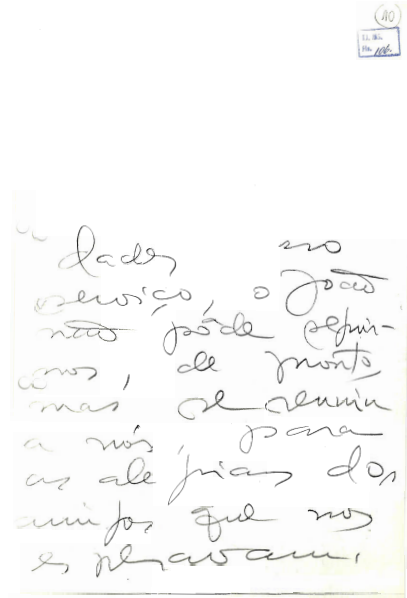 10
Fl. Nº
Nº 106
dades no
serviço, o João
não pôde seguir-
nos, de pronto,
mas se reuniu
a nós, para
as alegrias dos
amigos que nos
esperavam.